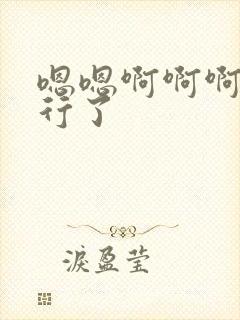 嗯嗯啊啊啊
行了
淚盈莹